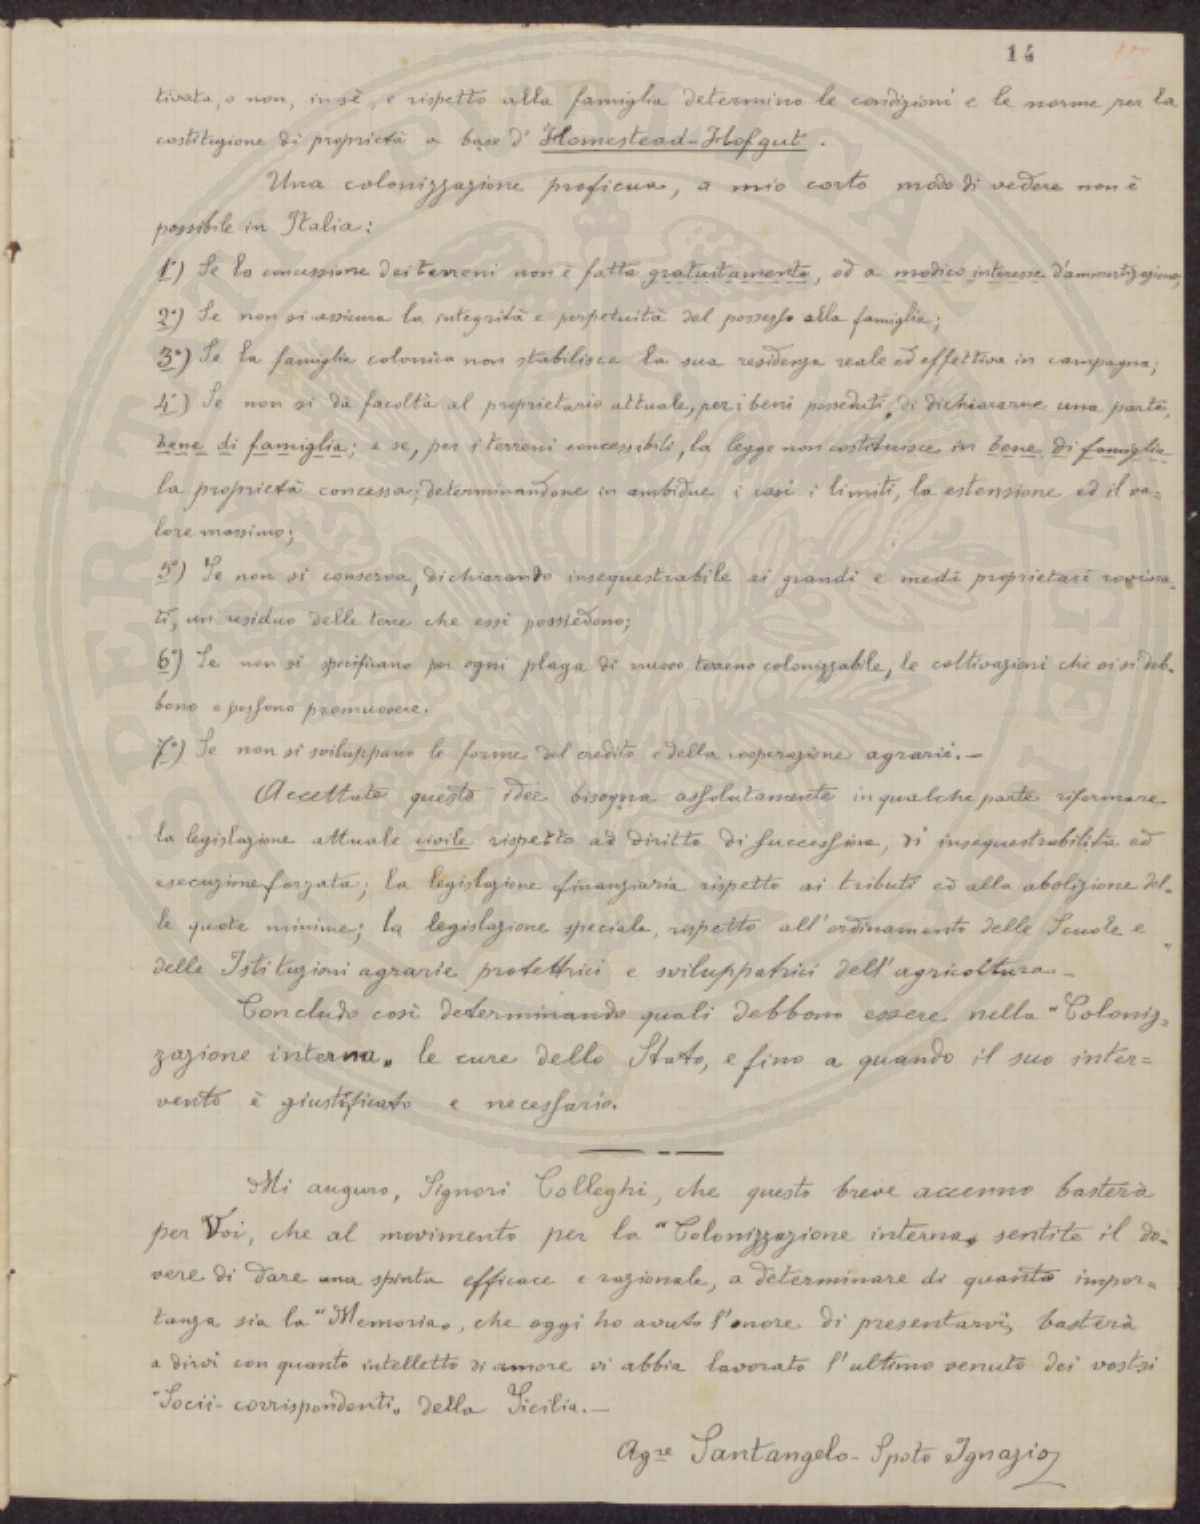 14
tivata, o non, in sè, e rispetto alla famiglia determino le condizioni e le norme per la
costituzione di proprietà a base d' Homestead-Hofgut.
Una colonizzazione proficua, a mio corto modo di vedere non è
possibile in Italia:
1°) Se la concessione dei terreni non è fatta gratuitamente, od a modico interesse d'ammortizzazione;
2°) Se non si assicura la integrità e perpetuità del possesso alla famiglia;
3°) Se la famiglia colonica non stabilisce la sua residenza reale ed effettiva in campagna;
4°) Se non si dà facoltà al proprietario attuale, per i beni posseduti, di dichiararne una parte,
bene di famiglia; e se, per i terreni concessibili, la legge non costituisce in bene di famiglia
la proprietà concessa; determinandone in ambidue i casi i limiti, la estensione ed il va=
lore massimo;
5°) Se non si conserva, dichiarando insequestrabile ai grandi e medi proprietari rovina=
ti, un residuo delle terre che essi possiedono;
6°) Se non si specificano per ogni plaga di nuovo terreno colonizzabile, le coltivazioni che vi si deb=
bono e possono promuovere.
7°) Se non si sviluppano le forme del credito e della cooperazione agrarii.—
Accettate queste idee bisogna assolutamente in qualche parte riformare
la legislazione attuale civile rispetto ad diritto di successione, di insequestrabilità ed
esecuzione forzata; la legislazione finanziaria rispetto ai tributi ed alla abolizione del=
le quote minime; la legislazione speciale, rispetto all'ordinamento delle Scuole e
delle Istituzioni agrarie protettrici e sviluppatrici dell'agricoltura.—
Concludo così determinando quali debbono essere nella "Coloniz=
zazione interna„ le cure dello Stato, e fino a quando il suo inter=
vento è giustificato e necessario.
Mi auguro, Signori Colleghi, che questo breve accenno basterà
per Voi, che al movimento per la "Colonizzazione interna„ sentite il do=
vere di dare una spinta efficace e razionale, a determinare di quanta impor=
tanza sia la "Memoria„, che oggi ho avuto l'onore di presentarvi, basterà
a dirvi con quanto intelletto di amore vi abbia lavorato l'ultimo venuto dei vostri
"Socii-corrispondenti„ della Sicilia.—
Agre Santangelo-Spoto Ignazio